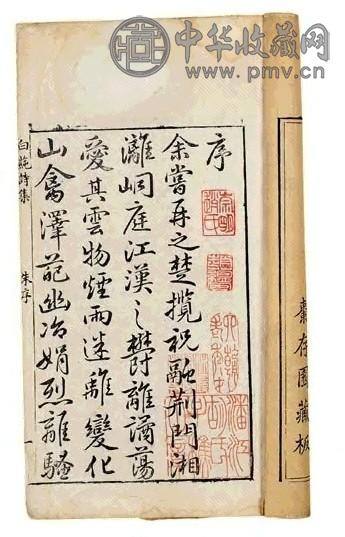 中华收藏网
www.pmv.cn
存園藏板
序
余嘗再之楚攬祝融荆門湘
灕峒庭江漢之欝離譎蕩
愛其雲物煙雨迷離變化
山禽澤葩幽冶娟烈離騷
白蒓詩集 朱序 一